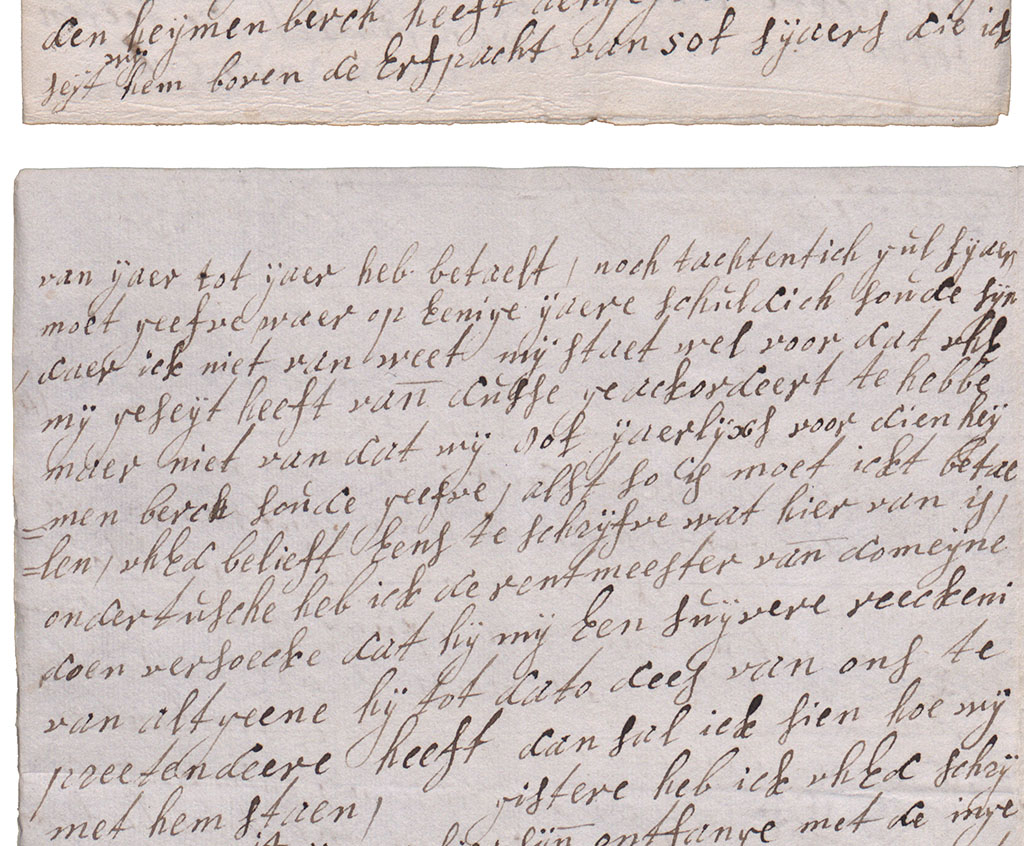 den heijmen berck heeft
seijt wij hem boven de Erfpacht van 50f sijaers die ick
van ijaer tot ijaer heb betaelt / noch tachtentich gul sijaers
moet geefve waer op Eenige ijaere schuldich soude sijn
/ daer ick niet van weet mij staet wel voor dat vhE
mij geseijt heeft van dusse geackordeert te hebbe
maer niet van dat wij 80f ijaerlijxs voor dien heij
=men berck soude geefve / alst so is moet ickt betae
=len / vhEd belieft Eens te schrijfve wat hier van is /
ondertusche heb ick de rentmeester van domeijne
doen versoecke dat hij mij Een suijvere reeckeni
van altgeene hij tot dato dees van ons te
preetendeere heeft dan sal ick sien hoe wij
met hem staen / gistere heb ick vhEd schrij
sijn ontfange met de inge